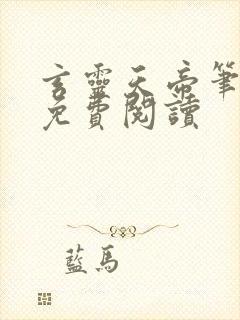 言靈天帝筆
免費閱讀
藍馬